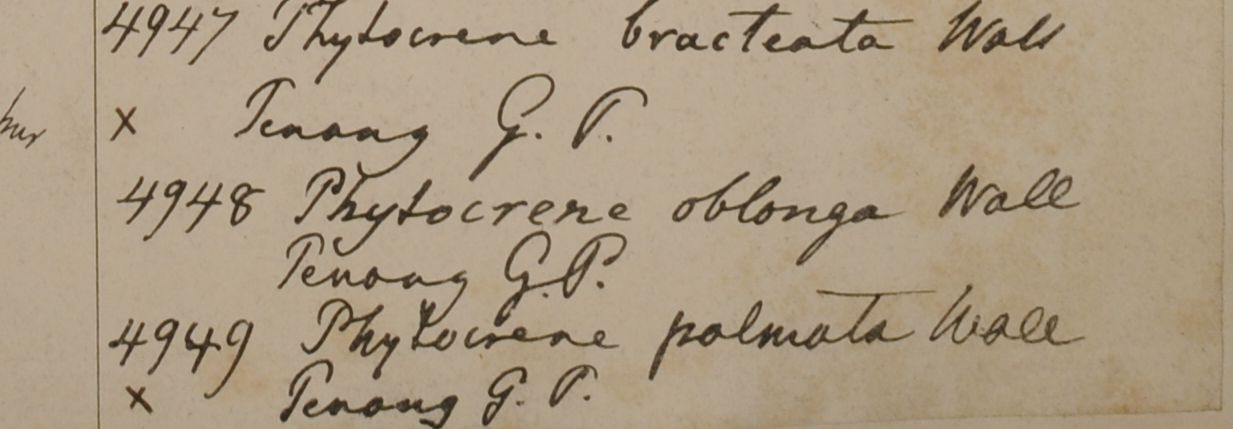 4947 Phytocrene bracteata Wall
x Penang G. P.
4948 Phytocrene oblonga Wall
Penang G.P.
4949 Phytocrene palmata Wall
x Penang G. P.